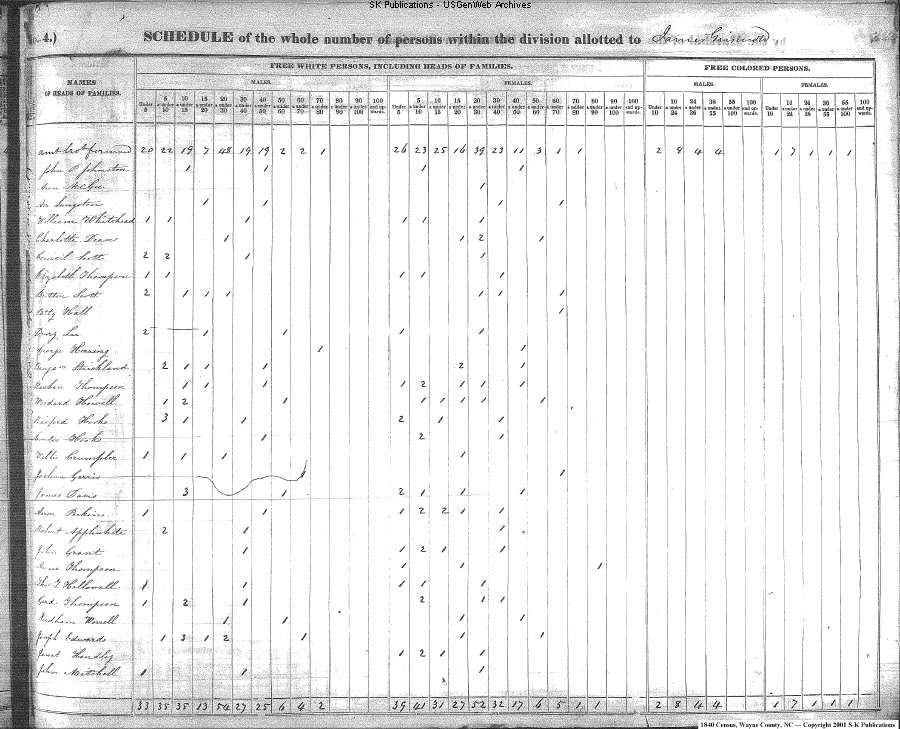 SK Publications - USGenWeb Archives
4.) SCHEDULE of the whole number of persons within the division allotted to James
NAMES OF HEADS OF FAMILIES.
FREE WHITE PERSONS, INCLUDING HEADS OF FAMILIES.
FREE COLORED PERSONS.
MALES. FEMALES. MALES. FEMALES.
Under 5 5 & under 10 10 & under 15 15 & under 20 20 & under 30 30 & under 40 40 & under 50 50 & under 60 60 & under 70 70 & under 80 80 & under 90 90 & under 100 100 and upwards.
Under 5 5 & under 10 10 & under 15 15 & under 20 20 & under 30 30 & under 40 40 & under 50 50 & under 60 60 & under 70 70 & under 80 80 & under 90 90 & under 100 100 and upwards.
Under 10 10 & under 24 24 & under 36 36 & under 55 55 & under 100 100 and upwards.
Under 10 10 & under 24 24 & under 36 36 & under 55 55 & under 100 100 and upwards.
amt brot forward 20 22 19 7 48 19 19 2 2 1 26 23 25 16 39 23 11 3 1 1 2 8 4 4 1 7 1 1 1
John P Johnston 1 1 1 1
Ann McGee 1
Langston 1 1 1 1
William Whitehead 1 1 1 1 1 1
Charlotte Deans 1 1 2 1
Council Scott 2 2 1 1
Elizabeth Thompson 1 1 1 1 1
Scott 2 1 1 1 1 1 1
Hall 1
Lee 2 1 1 1 1
George Herring 1 1
Strickland 2 1 1 1 2 1
Reuben Thompson 1 1 1 1 2 1 1 1
Woodard Howell 1 2 1 1 1 1 1 1
Hooks 3 1 1 2 1 1
Hooks 1 2 1
Willie Crumpler 1 1 1 1
Joshua 1
James Davis 3 1 2 1 1 1
Perkins 1 1 1 2 2 1 1
Robert Applewhite 2 1 1
John Grant 1 1 2 1 1
Thompson 1 1 1
Hollowell 1 1 1 1 1
Thompson 1 2 1 2 1 1
Needham Worrell 1 1 1 1
Joseph Edwards 1 3 1 2 1 1 1
Janet Hendley 1 2 1 1
John Mitchell 1 1 1
33 35 35 13 54 27 25 6 4 2 39 41 31 27 52 32 17 6 5 1 1 2 8 4 4 1 7 1 1 1
1840 Census, Wayne County, NC — Copyright 2001 S-K Publications